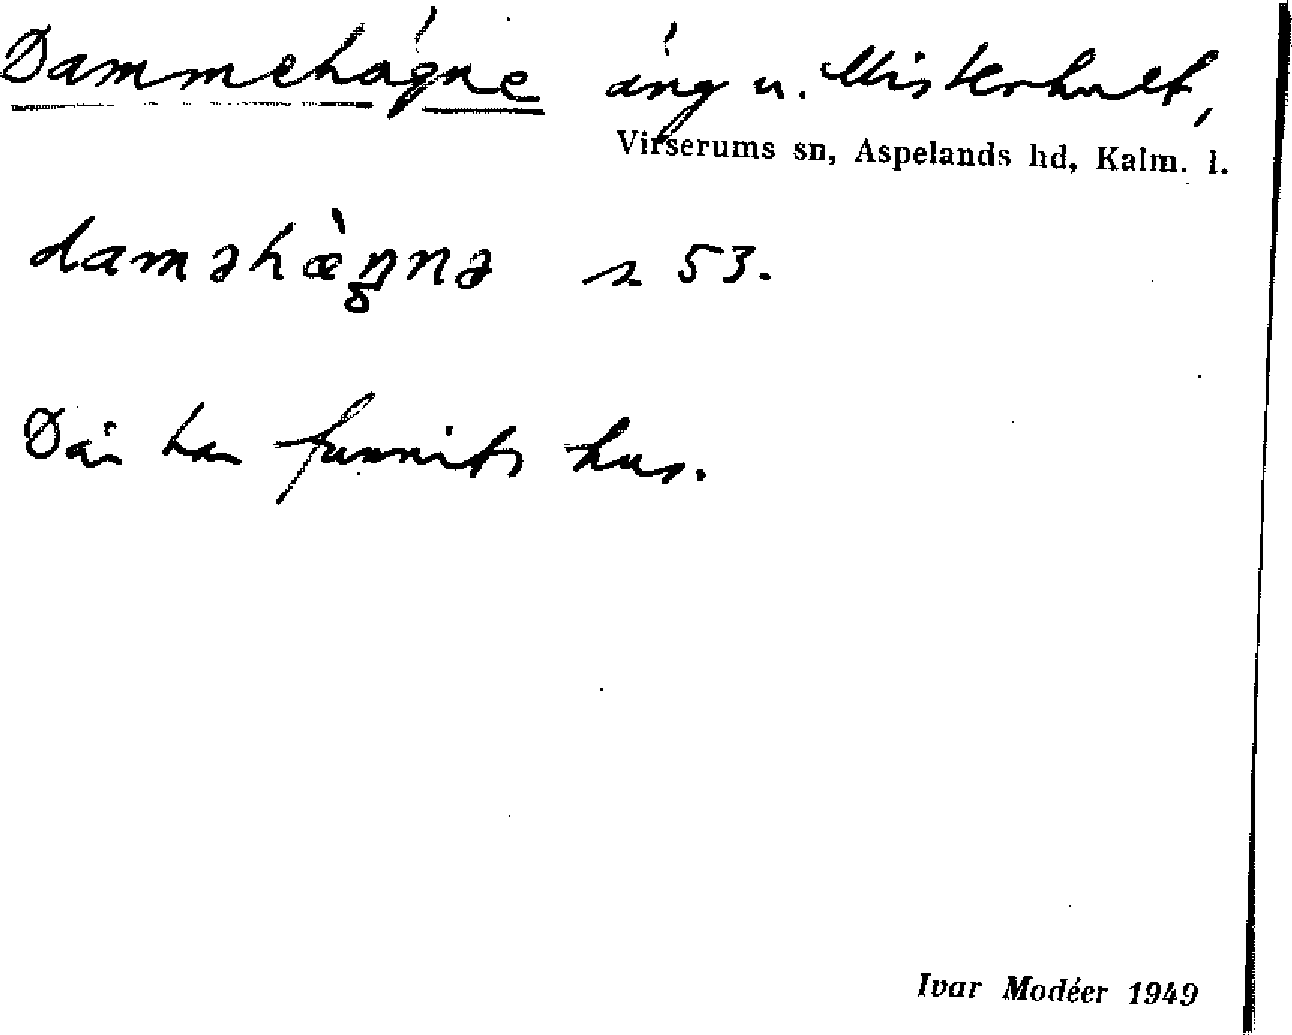 Dammehägne äng u. Misterhult,
Virserums sn, Aspelands hd, Kalm. l.
daməhæ̀ŋnə s 53.
Där har funnits hus.
Ivar Modéer 1949